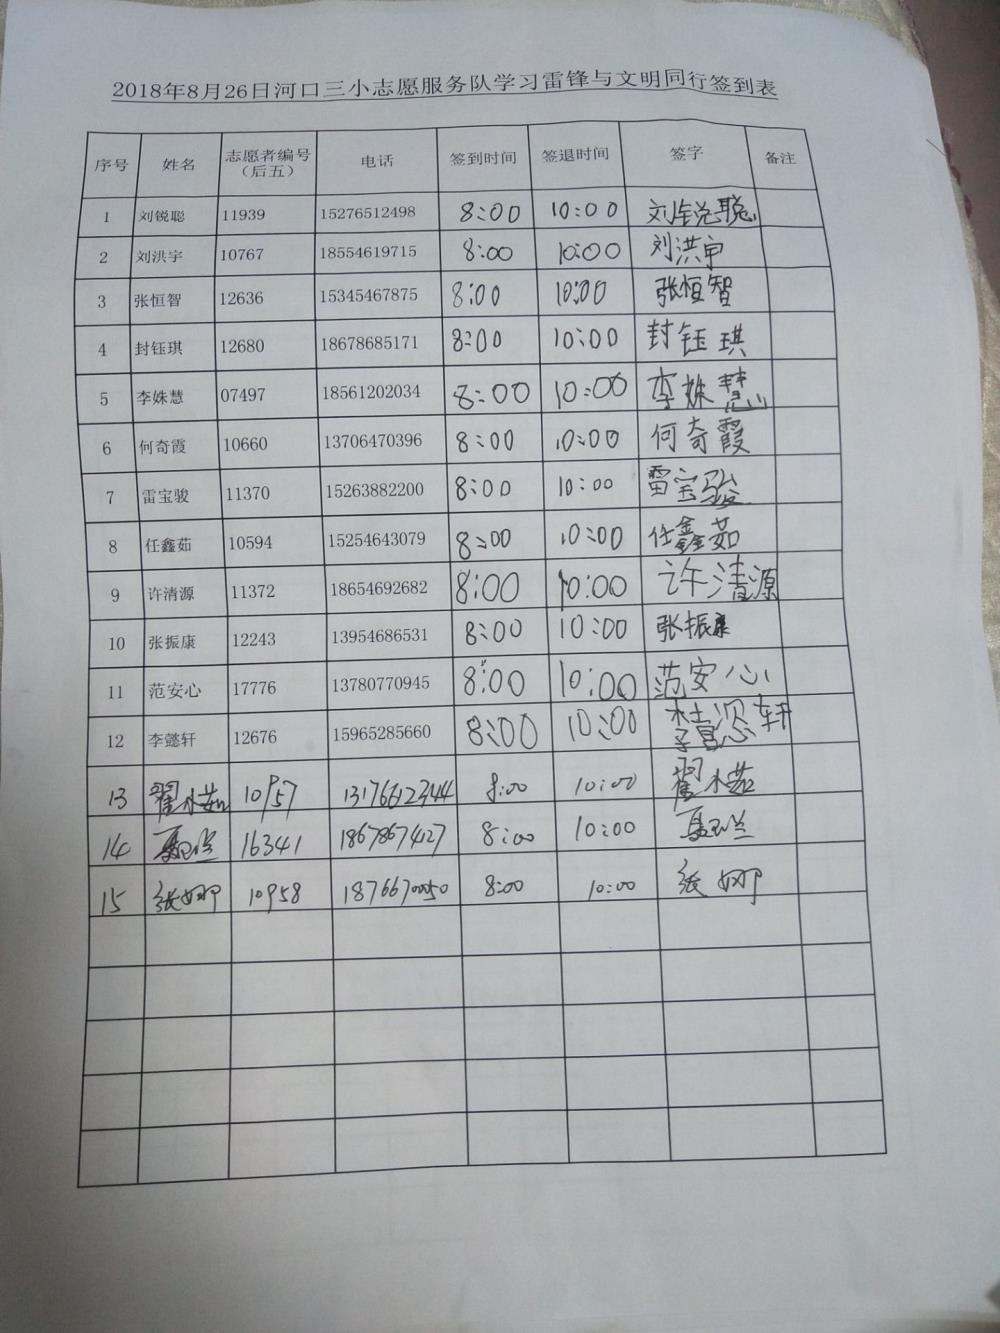 2018年8月26日河口三小志愿服务队学习雷锋与文明同行签到表
序号 姓名 志愿者编号（后五） 电话 签到时间 签退时间 签字 备注
1 刘锐聪 11939 15276512498 8:00 10:00 刘锐聪
2 刘洪宇 10767 18554619715 8:00 10:00 刘洪宇
3 张恒智 12636 15345467875 8:00 10:00 张恒智
4 封钰琪 12680 18678685171 8:00 10:00 封钰琪
5 李姝慧 07497 18561202034 8:00 10:00 李姝慧
6 何奇霞 10660 13706470396 8:00 10:00 何奇霞
7 雷宝骏 11370 15263882200 8:00 10:00 雷宝骏
8 任鑫茹 10594 15254643079 8:00 10:00 任鑫茹
9 许清源 11372 18654692682 8:00 10:00 许清源
10 张振康 12243 13954686531 8:00 10:00 张振康
11 范安心 17776 13780770945 8:00 10:00 范安心
12 李懿轩 12676 15965285660 8:00 10:00
13 10957 13176612344 8:00 10:00
14 16341 18678674427 8:00 10:00
15 张娜 10958 18766670050 8:00 10:00 张娜